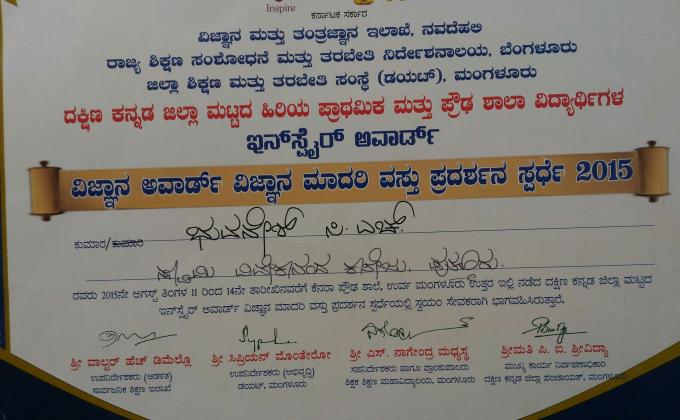 Inspire
ಕರ್ನಾಟಕ ಸರ್ಕಾರ
ವಿಜ್ಞಾನ ಮತ್ತು ತಂತ್ರಜ್ಞಾನ ಇಲಾಖೆ, ನವದೆಹಲಿ
ರಾಜ್ಯ ಶಿಕ್ಷಣ ಸಂಶೋಧನೆ ಮತ್ತು ತರಬೇತಿ ನಿರ್ದೇಶನಾಲಯ, ಬೆಂಗಳೂರು
ಜಿಲ್ಲಾ ಶಿಕ್ಷಣ ಮತ್ತು ತರಬೇತಿ ಸಂಸ್ಥೆ (ಡಯಟ್), ಮಂಗಳೂರು
ದಕ್ಷಿಣ ಕನ್ನಡ ಜಿಲ್ಲಾ ಮಟ್ಟದ ಹಿರಿಯ ಪ್ರಾಥಮಿಕ ಮತ್ತು ಪ್ರೌಢ ಶಾಲಾ ವಿದ್ಯಾರ್ಥಿಗಳ
ಇನ್‌ಸ್ಪೈರ್ ಅವಾರ್ಡ್
ವಿಜ್ಞಾನ ಅವಾರ್ಡ್ ವಿಜ್ಞಾನ ಮಾದರಿ ವಸ್ತು ಪ್ರದರ್ಶನ ಸ್ಪರ್ಧೆ 2015
ಕುಮಾರ/ಕುಮಾರಿ ಭುವನೇಶ್ ಸಿ. ಎಚ್.
ಸ್ವಾಮಿ ವಿವೇಕಾನಂದ ಕಾಲೇಜು.
ರವರು 2015ನೇ ಅಗಸ್ಟ್ ತಿಂಗಳ 11 ರಿಂದ 14ನೇ ತಾರೀಖಿನವರೆಗೆ ಕೆನರಾ ಪ್ರೌಢ ಶಾಲೆ, ಉರ್ವ ಮಂಗಳೂರು ಉತ್ತರ ಇಲ್ಲಿ ನಡೆದ ದಕ್ಷಿಣ ಕನ್ನಡ ಜಿಲ್ಲಾ ಮಟ್ಟದ
ಇನ್‌ಸ್ಪೈರ್ ಅವಾರ್ಡ್ ವಿಜ್ಞಾನ ಮಾದರಿ ವಸ್ತು ಪ್ರದರ್ಶನ ಸ್ಪರ್ಧೆಯಲ್ಲಿ ಸ್ವಯಂ ಸೇವಕರಾಗಿ ಭಾಗವಹಿಸಿರುತ್ತಾರೆ.
ಶ್ರೀ ವಾಲ್ಟರ್ ಹೆಚ್ ಡಿಮೆಲ್ಲೊ
ಉಪನಿರ್ದೇಶಕರು (ಆಡಳಿತ)
ಸಾರ್ವಜನಿಕ ಶಿಕ್ಷಣ ಇಲಾಖೆ
ಶ್ರೀ ಸಿಪ್ರಿಯನ್ ಮೊಂತೇರೋ
ಉಪನಿರ್ದೇಶಕರು (ಅಭಿವೃದ್ಧಿ)
ಡಯಟ್, ಮಂಗಳೂರು
ಶ್ರೀ ಎಸ್. ನಾಗೇಂದ್ರ ಮಧ್ಯಸ್ಥ
ಸಹನಿರ್ದೇಶಕರು ಹಾಗೂ ಪ್ರಾಂಶುಪಾಲರು
ಶಿಕ್ಷಕ ಶಿಕ್ಷಣ ಮಹಾವಿದ್ಯಾಲಯ, ಮಂಗಳೂರು
ಶ್ರೀಮತಿ ಪಿ. ಐ. ಶ್ರೀವಿದ್ಯಾ
ಮುಖ್ಯ ಕಾರ್ಯ ನಿರ್ವಹಣಾಧಿಕಾರಿ
ದಕ್ಷಿಣ ಕನ್ನಡ ಜಿಲ್ಲಾ ಪಂಚಾಯತ್, ಮಂಗಳೂರು